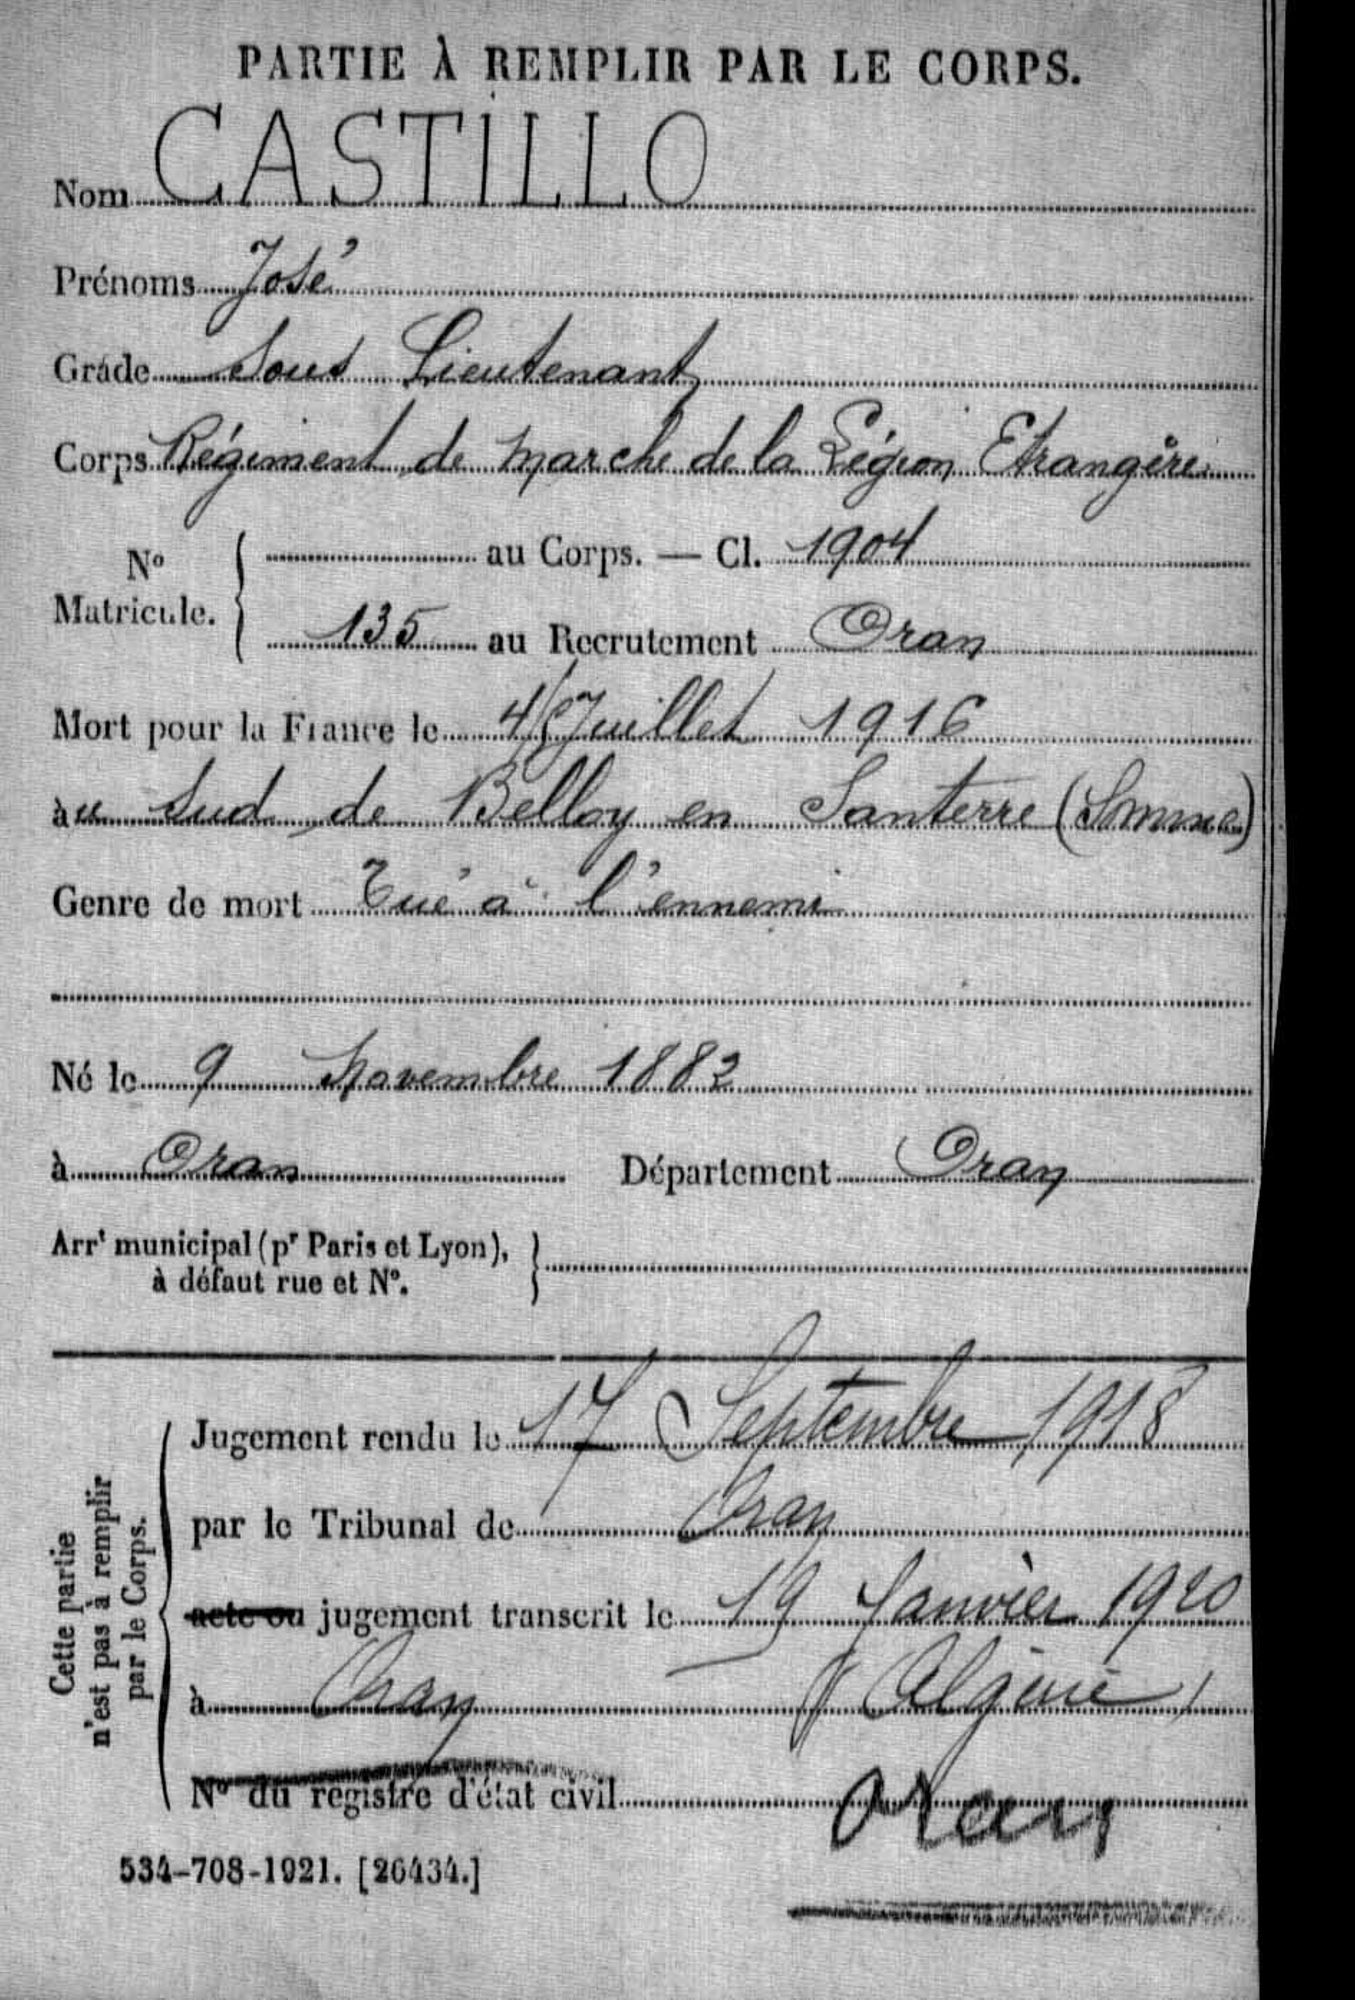 PARTIE À REMPLIR PAR LE CORPS.
Nom CASTILLO
Prénoms José
Grade Sous Lieutenant
Corps Régiment de marche de la Légion Etrangère
No Matricule. { au Corps. — Cl. 1904
135 au Recrutement Oran
Mort pour la France le 4/5 Juillet 1916
au Sud de Belloy en Santerre (Somme)
Genre de mort Tué à l'ennemi
Né le 9 Novembre 1882
à Oran Département Oran
Arrt municipal (pr Paris et Lyon), à défaut rue et No. }
Cette partie n'est pas à remplir par le Corps.
Jugement rendu le 17 Septembre 1918
par le Tribunal de Oran
acte ou jugement transcrit le 19 Janvier 1920
à Oran (Algérie)
No du registre d'état civil
Oran
534-708-1921. [26434.]